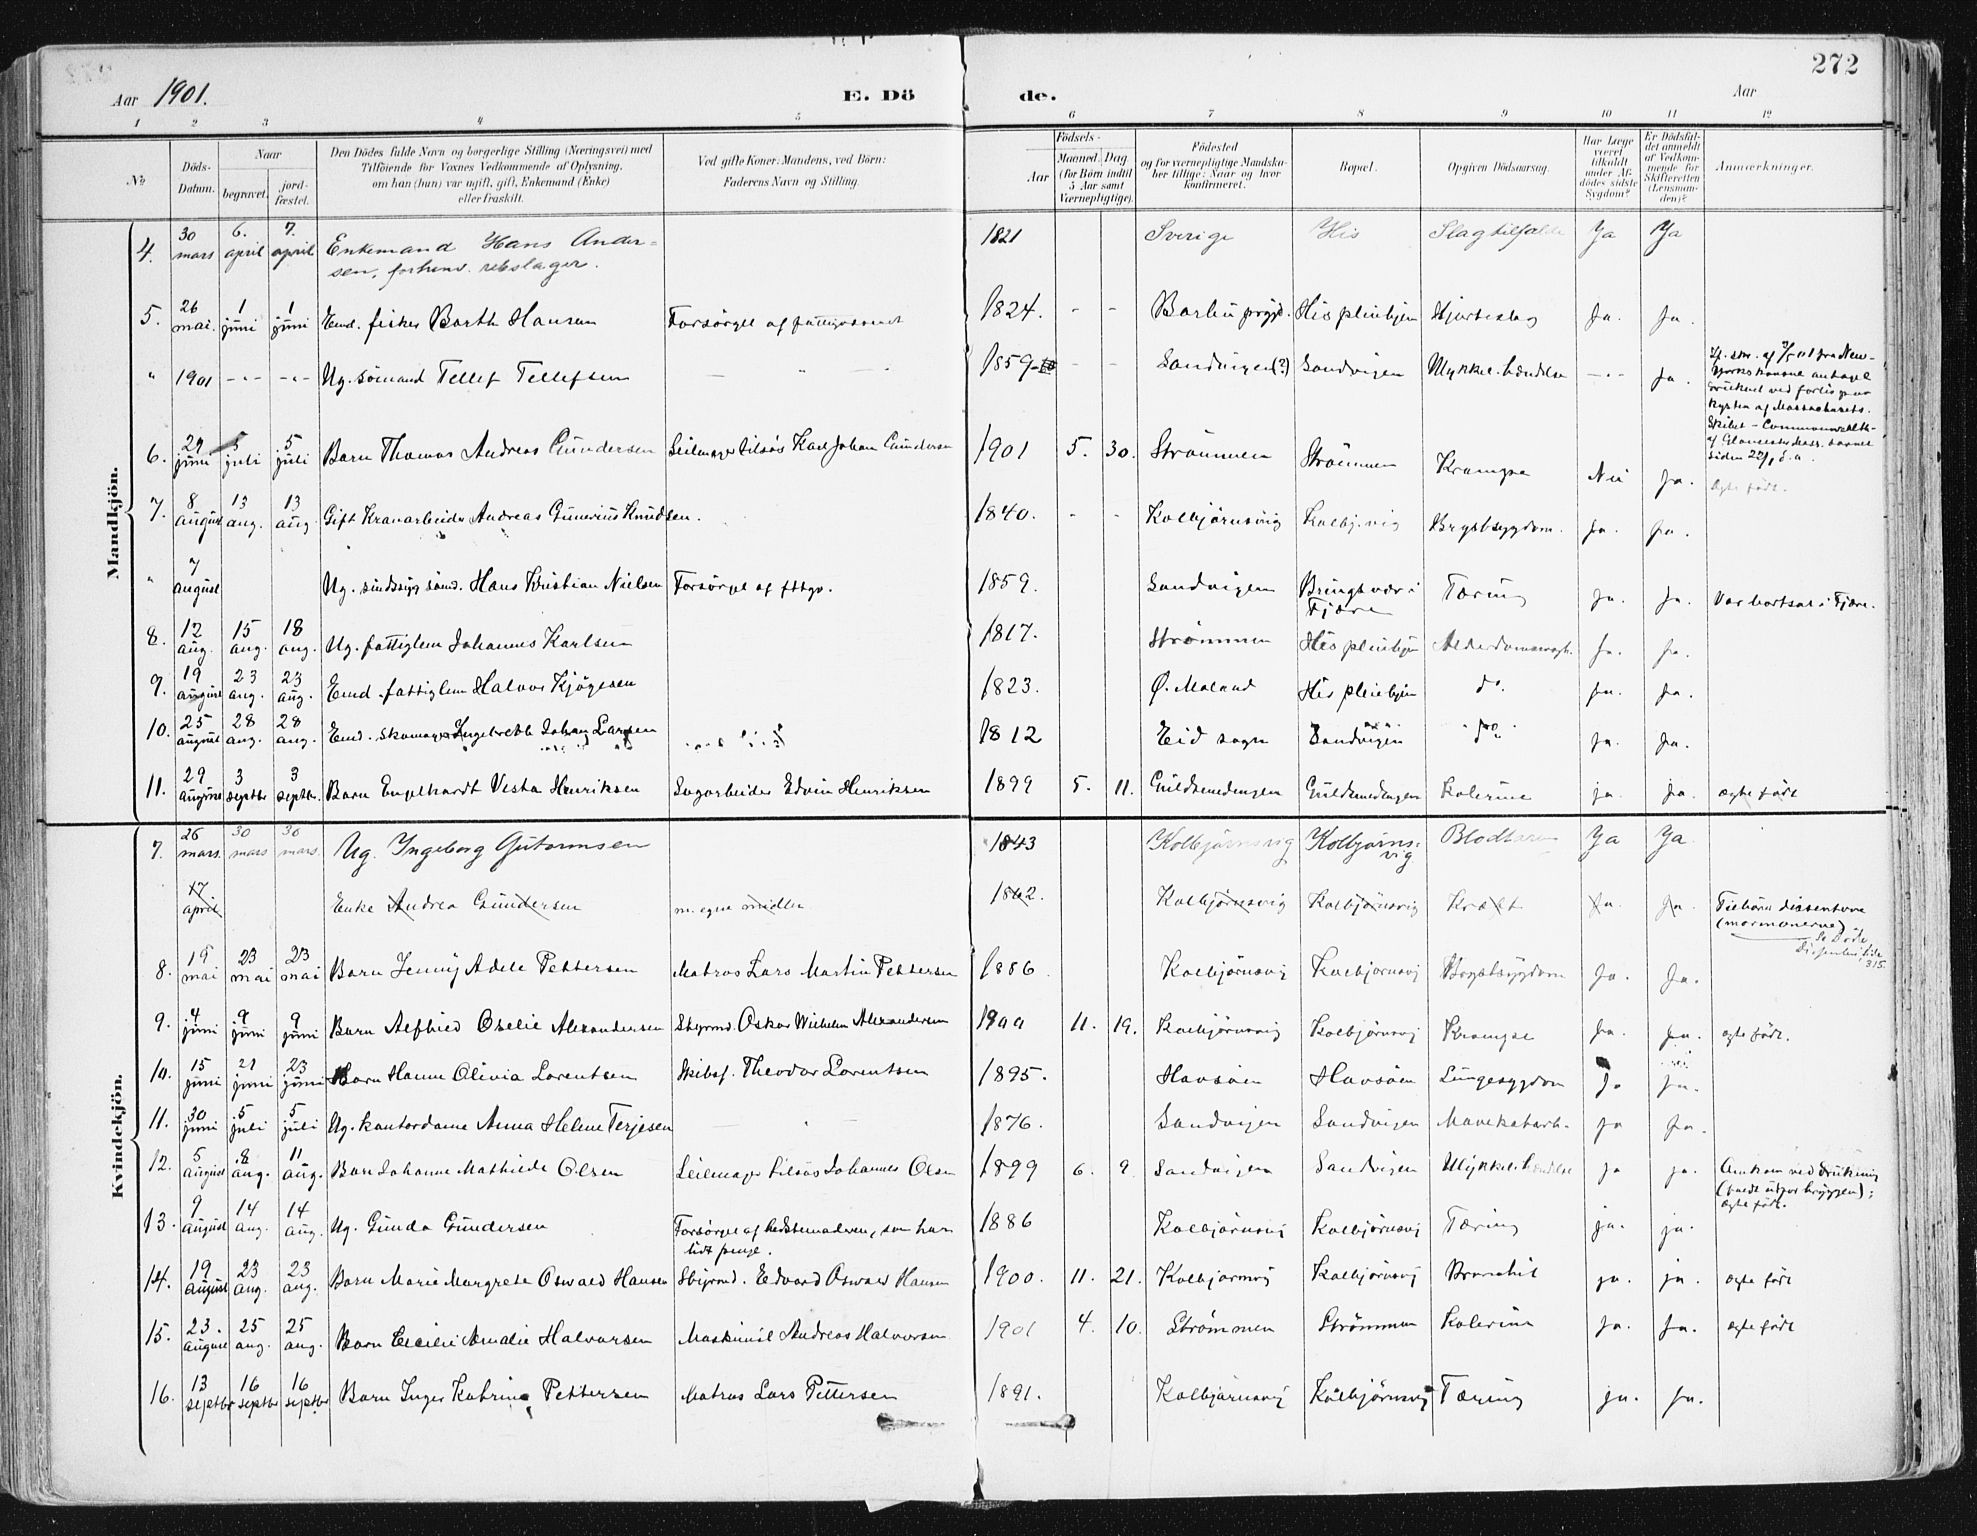 272
Aar 1901. E. Dö de. Aar
1 2 3 4 5 6 7 8 9 10 11 12
No
Döds-Datum.
Naar
begravet.
jord-fæstet.
Den Dödes fulde Navn og borgerlige Stilling (Næringsvei) med
Tilföiende for Voxnes Vedkommende af Oplysning,
om han (hun) var ugift, gift, Enkemand (Enke)
eller fraskilt.
Ved gifte Koner: Mandens, ved Börn:
Faderens Navn og Stilling.
Födsels-
Aar
Maaned. Dag.
(for Börn indtil
5 Aar samt
Værnepligtige).
Födested
og for værnepligtige Mandska-
ber tillige: Naar og hvor
konfirmeret.
Bopæl.
Opgiven Dödsaarsag.
Har Læge
været
tilkaldt
under Af-
dödes sidste
Sygdom?
Er Dödsfal-
det anmeldt
af Vedkom-
mende for
Skifteretten
(Lensman-
den)?
Anmærkninger.
Mandkjön.
4. 30 mars 6. april 7. april Enkemand Hans Ander-
sen, forhenv. rebslager. 1821 Sverige His Slagtilfælde Ja Ja
5. 26 mai. 1 juni 1 juni Emd. fisker Barth Hansen Forsörgel af fattigvæsenet 1824. - - Barbu prgjd. His pleiehjem Hjerteslag Ja. Ja.
" 1901 -"- -"- Ug. sömand Tellef Tellefsen — " — 1859 - - Sandvigen(?) Sandvigen Ulykkel. hændelse -"- Ja.
kysten af Massachusets.
Skibet - Commonwealth -
6. 29 juni 5 juli 5 juli Barn Thomas Andreas Gundersen Seilmager Karl Johan Gundersen 1901 5. 30. Strömmen Strömmen Krampe Nei Ja. Ægte født.
7. 8 august 13 aug. 13 aug. Gift Kranarbeider Andreas Gunerius Knudsen. 1840. - - Kolbjörnsvig Kolbj.vig Brystsygdom. Ja. Ja.
" 7 august Ug. sindssyg sömd. Hans Kristian Nielsen Forsörgel af fttgv. 1859. Sandvigen Bringsvær i
Fjære Tæring Ja. Ja. Var bortsat i Fjære.
8. 12 aug. 15 aug. 18 aug. Ug. fattiglem Johannes Karlsen 1817. Strömmen His pleiehjem Alderdomssvagh. Ja. Ja.
9. 19 august 23 aug. 23 aug. Emd. fattiglem Halvor Kjögesen 1823. Ø. Moland His pleiehjem do. Ja. Ja.
10. 25 august 28 aug. 28 aug. Emd. skomager Ingebreth Johan Larsen 1812 Eid sogn Sandvigen do. Ja. Ja.
11. 29 august 3 septbr. 3 septbr. Barn Engelhardt Vesta Henriksen Sagarbeider Edvin Henriksen 1899 5. 11. Guldsmedengen Guldsmedengen Kolerine ja. ja. ægte født
Kvindekjön.
7. 26 mars. 30 mars 30 mars. Ug. Ingeborg Gutormsen 1843 Kolbjørnsvig Kolbjørns-
vig Ja Ja
17 april Enke Andrea Gundersen m. egne midler 1862. Kolbjörnsvig Kolbjörnsvig Kræft Ja. Ja. Tilhörer dissenterne
(mormonerne)
Se Døde
Dissentere, side
315.
8. 19 mai 23 mai 23 mai Barn Jenny Adele Pettersen Matros Lars Martin Pettersen 1886 Kolbjörnsvg Kolbjörnsvg Brystsygdom Ja. Ja.
9. 4 juni 9 juni 9 juni Barn Alfhild Oselie Alexandersen Styrmd. Oskar Wilhelm Alexandersen 1900 11. 19. Kolbjörnsvig Kolbjörnsvg Krampe Ja. Ja. ægte født.
10. 15 juni 21 juni 23 juni Barn Hanna Olivia Lorentsen Skibsf. Theodor Lorentsen 1895. Havsöen Havsöen Lungesygdom Ja Ja.
11. 30 juni 5 juli 5 juli Ug. kontordame Anna Helene Terjesen — " — 1876. Sandvigen Sandvigen Mavekatarh. ja ja.
12. 5 august 8 aug. 11 aug. Barn Johanne Mathilde Olsen Seilmager Johannes Olsen 1899 6. 9 Sandvigen Sandvigen Ulykkel. hændelse ja ja. Omkom ved drukning
(faldt udfor bryggen);
ægte født.
13. 9 august 14 aug. 14 aug. Ug. Gunda Gundersen Forsörgel af bedstemoderen, som har
lidt penge. 1886 Kolbjörnsvg Kolbjörnsvg Tæring ja. ja.
14. 19 august 23 aug. 23 aug. Barn Marie Margrete Oswald Hansen Styrmd. Edvard Oswald Hansen 1900. 11. 21. Kolbjörnsvg Kolbjörnsvg Bronchit ja. ja. ægte født
15. 23. august 25 aug. 25 aug. Barn Cecilie Amalie Halvorsen Maskinist Andreas Halvorsen 1901 4. 10. Strömmen Strömmen Kolerine ja. ja. ægte født
16. 13 septbr 16 septbr 16 septbr Barn Inger Katrine Pettersen Matros Lars Pettersen 1891. Kolbjörnsvg Kolbjörnsvg Tæring ja. ja.